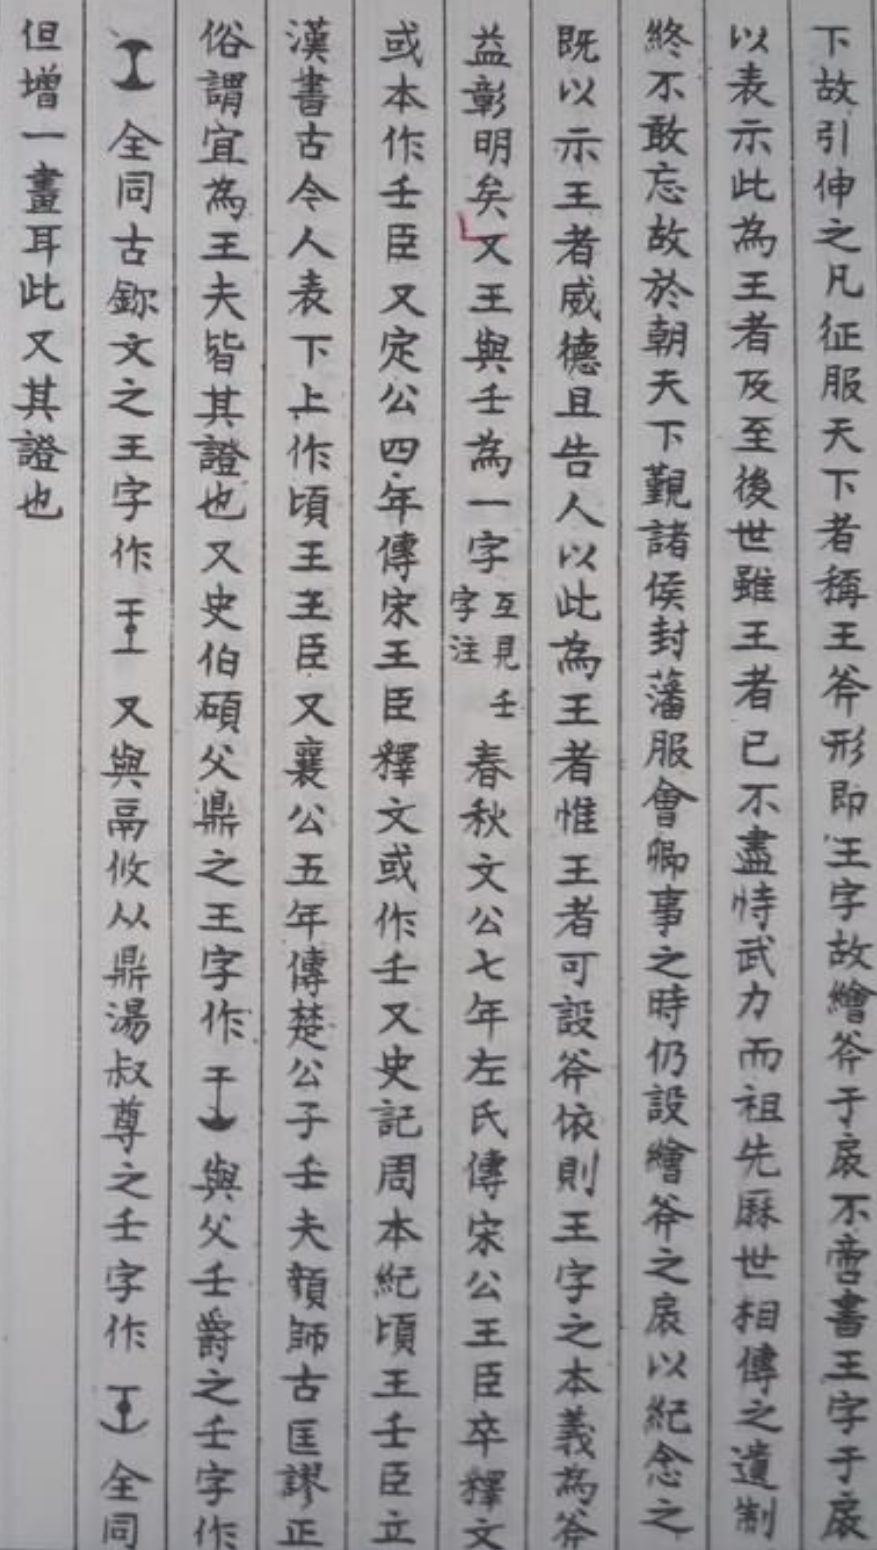 下故引伸之凡征服天下者稱王斧形即王字故繪斧于扆不啻書王字于扆
以表示此為王者及至後世雖王者已不盡恃武力而祖先厤世相傳之遺制
終不敢忘故於朝天下覲諸侯封藩服會卿事之時仍設繪斧之扆以紀念之
既以示王者威德且告人以此為王者惟王者可設斧依則王字之本義為斧
益彰明矣又王與壬為一字互見壬字注春秋文公七年左氏傳宋公王臣卒釋文
或本作壬臣又定公四年傳宋王臣釋文或作壬又史記周本紀頃王壬臣立
漢書古今人表下上作頃王王臣又襄公五年傳楚公子壬夫顏師古匡謬正
俗謂宜為王夫皆其證也又史伯碩父鼎之王字作與父壬爵之壬字作
全同古鉨文之王字作又與鬲攸从鼎湯叔尊之壬字作全同
但增一畫耳此又其證也